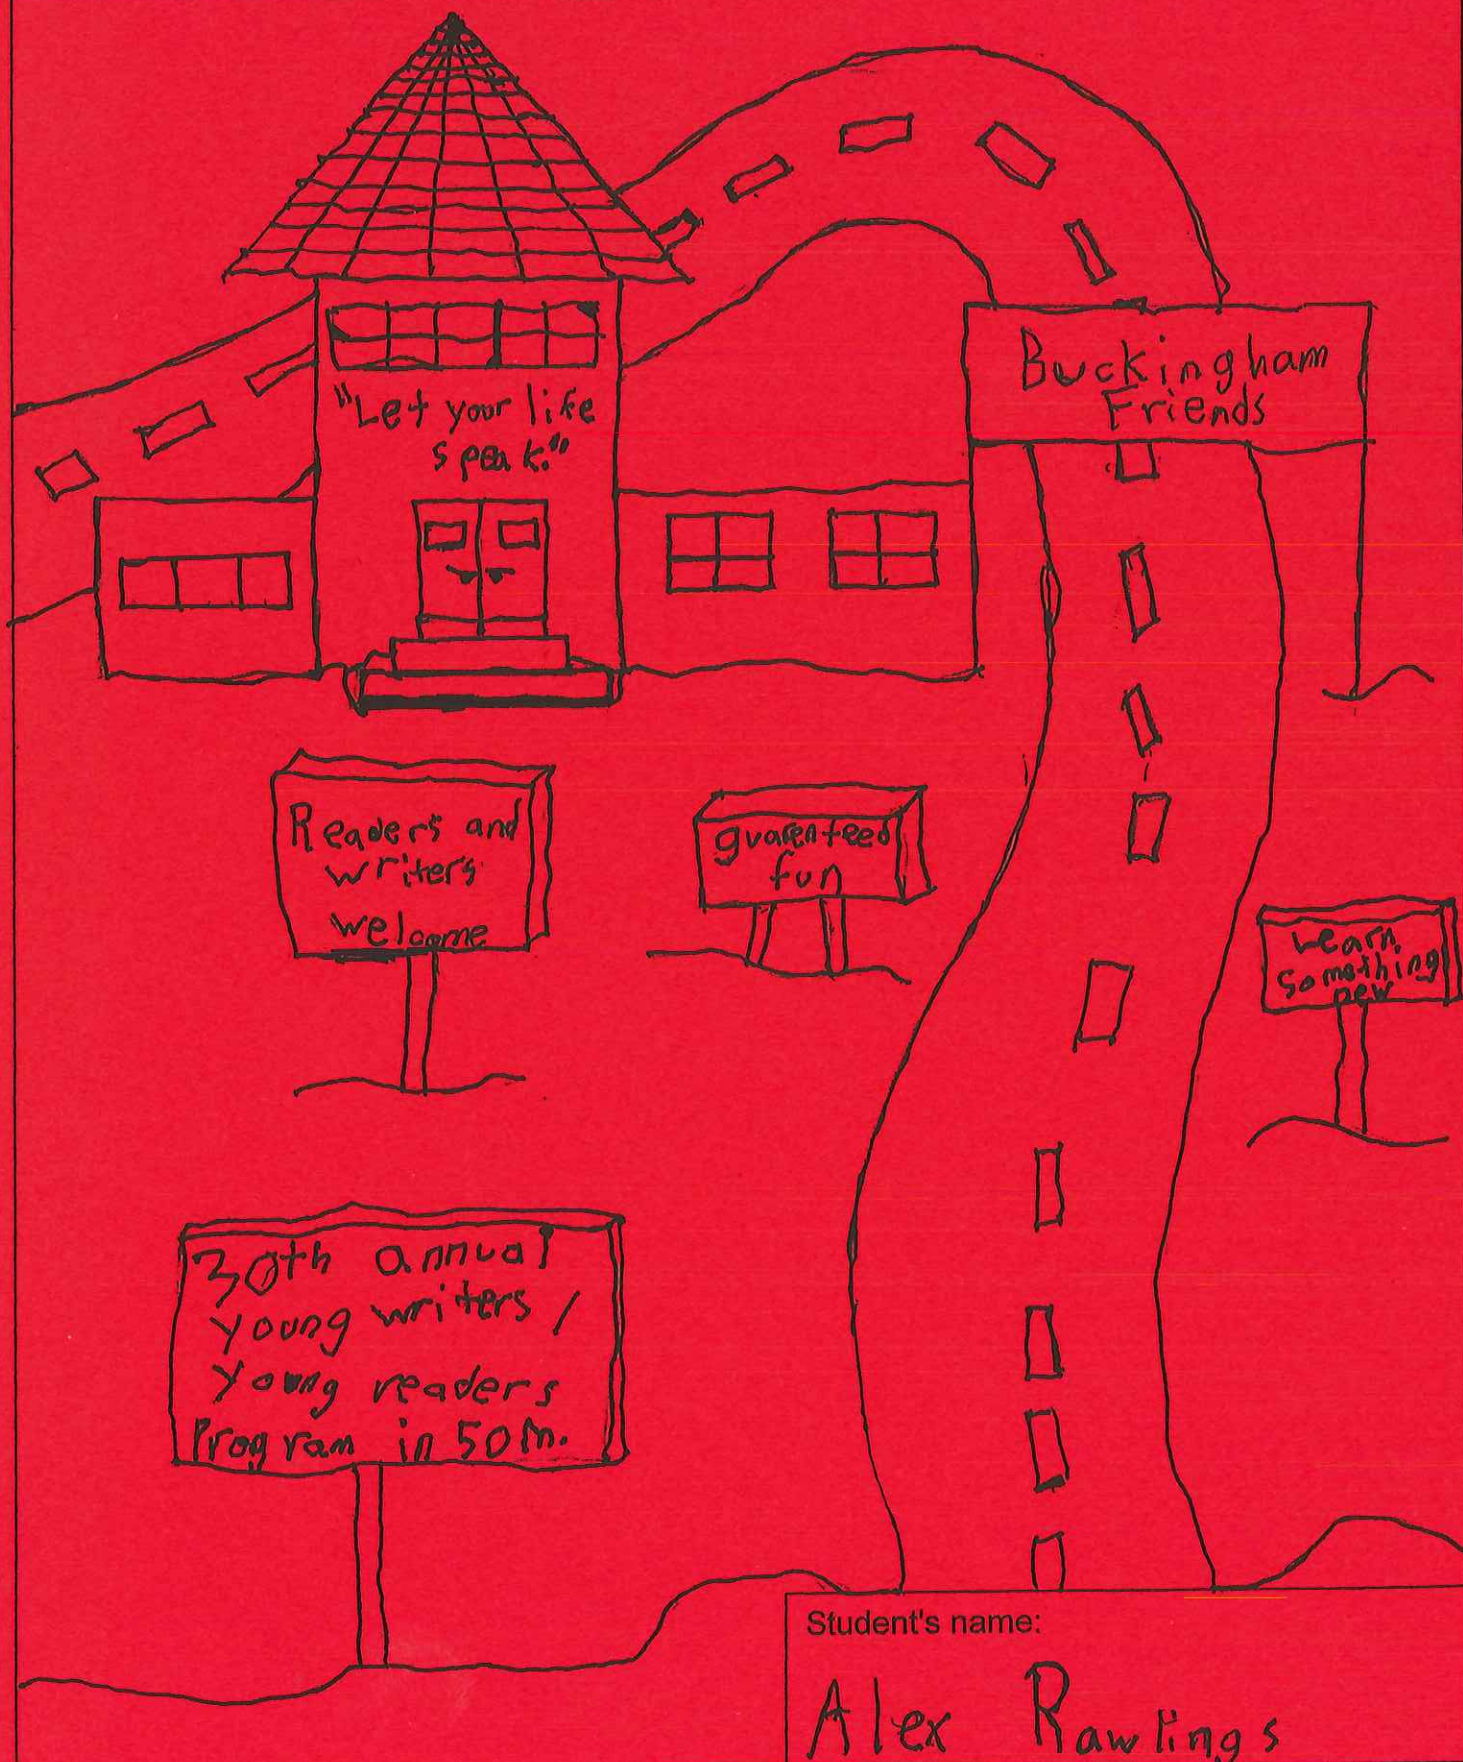 "Let your life
speak."
Buckingham
Friends
Readers and
writers
welcome
guarenteed
fun
Learn
Something
new
30th annual
young writers /
young readers
Program in 50m.
Student's name:
Alex Rawlings